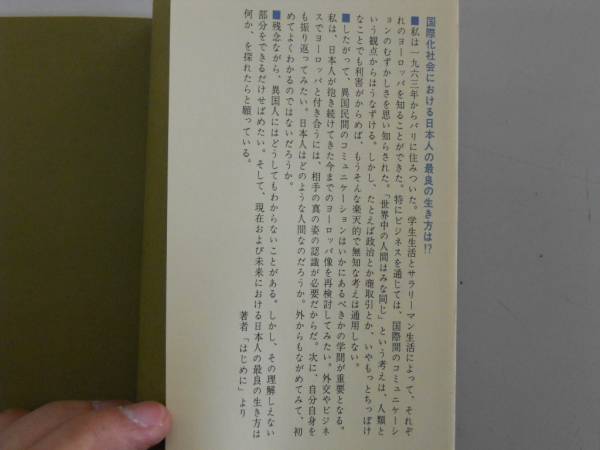 国際化社会における日本人の最良の生き方は!?
■私は一九六三年からパリに住みついた。学生生活とサラリーマン生活によって、それぞ
れのヨーロッパを知ることができた。特にビジネスを通じては、国際間のコミュニケーシ
ョンのむずかしさを思い知らされた。「世界中の人間はみな同じ」という考えは、人類と
いう観点からはうなずける。しかし、たとえば政治とか商取引とか、いやもっとちっぽけ
なことでも利害がからめば、もうそんな楽天的で無知な考えは通用しない。
■したがって、異国民間のコミュニケーションはいかにあるべきかの学問が重要となる。
私は、日本人が抱き続けてきた今までのヨーロッパ像を再検討してみたい。外交やビジネ
スでヨーロッパと付き合うには、相手の真の姿の認識が必要だからだ。次に、自分自身を
も振り返ってみたい。日本人はどのような人間なのだろうか。外からもながめてみて、初
めてよくわかるのではないだろうか。
■残念ながら、異国人にはどうしてもわからないことがある。しかし、その理解しえない
部分をできるだけせばめたい。そして、現在および未来における日本人の最良の生き方は
何か、を探れたらと願っている。
著者「はじめに」より